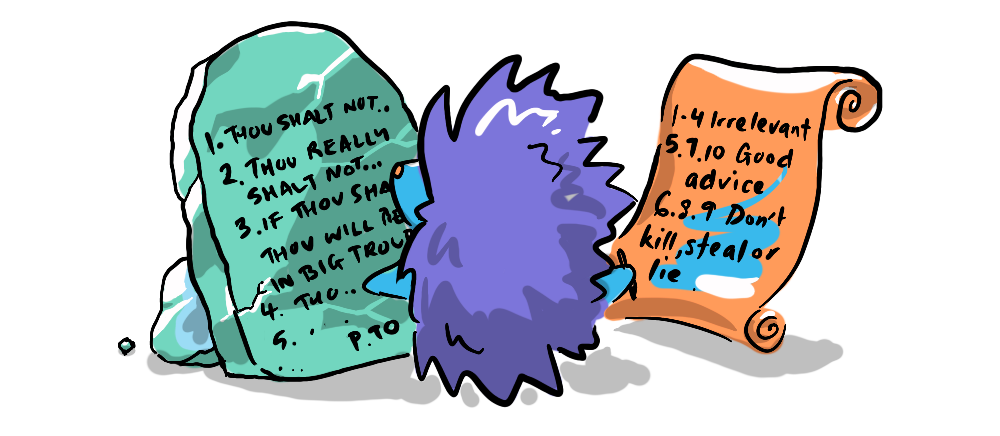 1. THOU SHALT NOT..
2. THOU REALLY
SHALT NOT...
3. IF THOU SHA
THOU WILL BE
IN BIG TROUB
4. THO..
5. . .
P.TO
1-4 Irrelevant
5.7.10 Good
advice
6.8.9 Don't
kill, steal or
lie